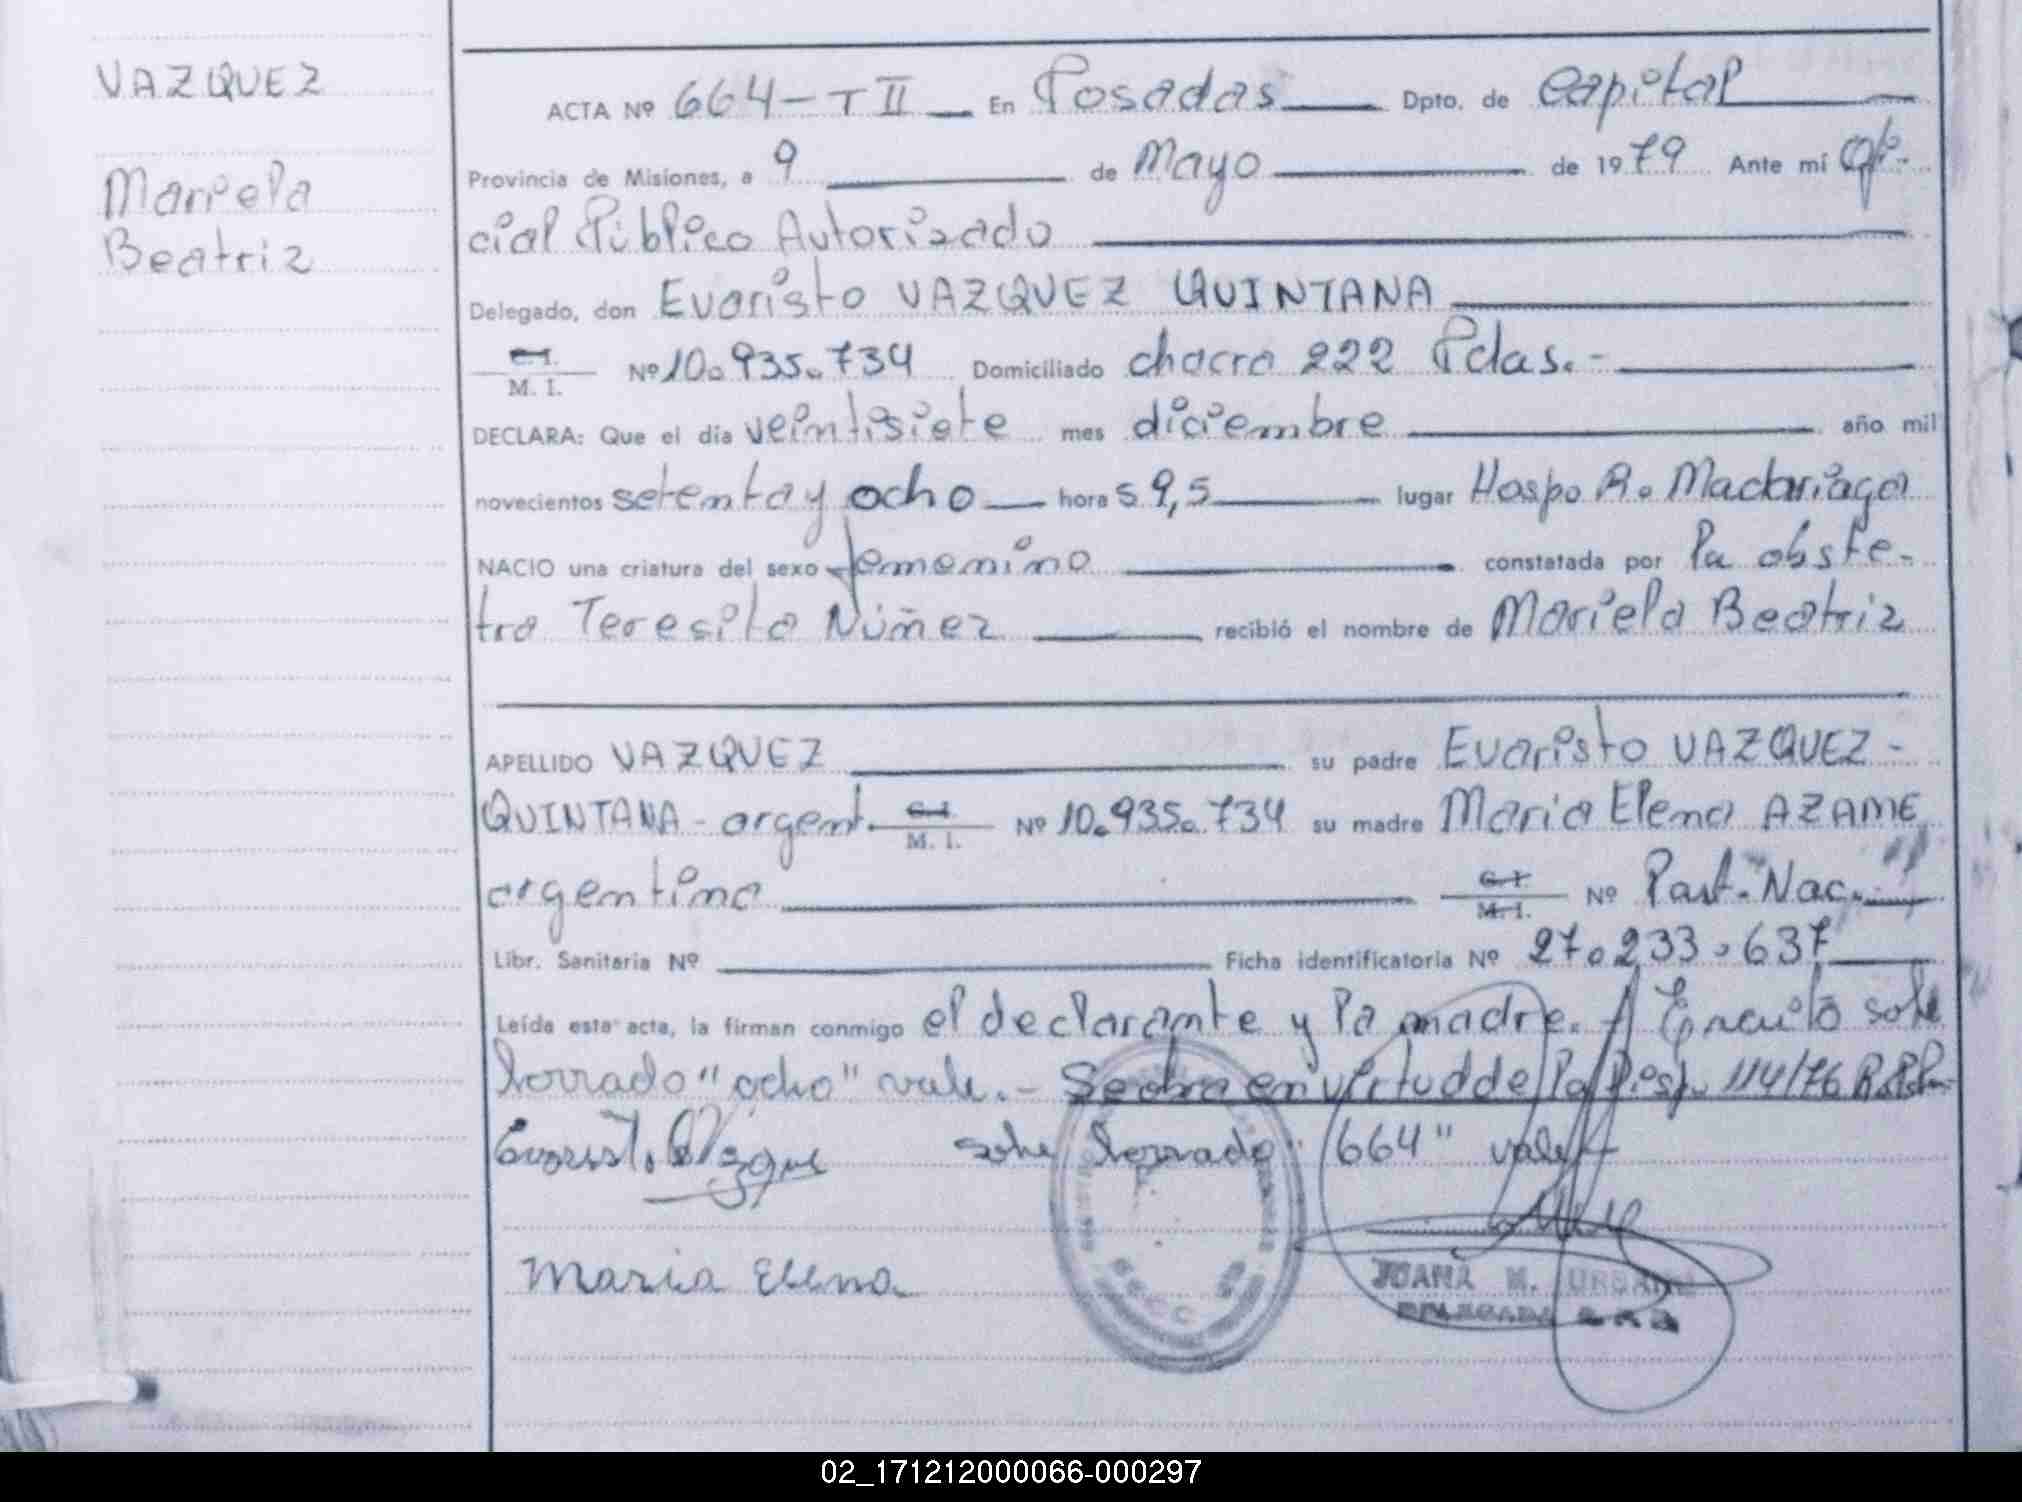 VAZQUEZ
Mariela
Beatriz
ACTA Nº 664-TII En Posadas Dpto. de Capital
Provincia de Misiones, a 9 de Mayo de 1979 Ante mí Ofi-
cial Público Autorizado
Delegado, don Evaristo VAZQUEZ QUINTANA
C.I. M. I. Nº 10.935.734 Domiciliado chacra 222 Pdas.-
DECLARA: Que el día veintisiete mes diciembre año mil
novecientos setenta y ocho hora s 9,5 lugar Hosp. R. Madariaga
NACIO una criatura del sexo femenino constatada por la obste-
tra Teresita Núñez recibió el nombre de Mariela Beatriz
APELLIDO VAZQUEZ su padre Evaristo VAZQUEZ-
QUINTANA - argent. C.I. M. I. Nº 10.935.734 su madre María Elena AZAME
argentina C.I. M.I. Nº Part. Nac.
Libr. Sanitaria Nº Ficha identificatoria Nº 27.233.637
Leída esta acta, la firman conmigo el declarante y la madre. sobre
borrado "ocho" vale.- Se labra en virtud de la Disp. 114/76
sobre borrado "664" vale
Maria Elena
JUANA M.
DELEGADA
02_171212000066-000297